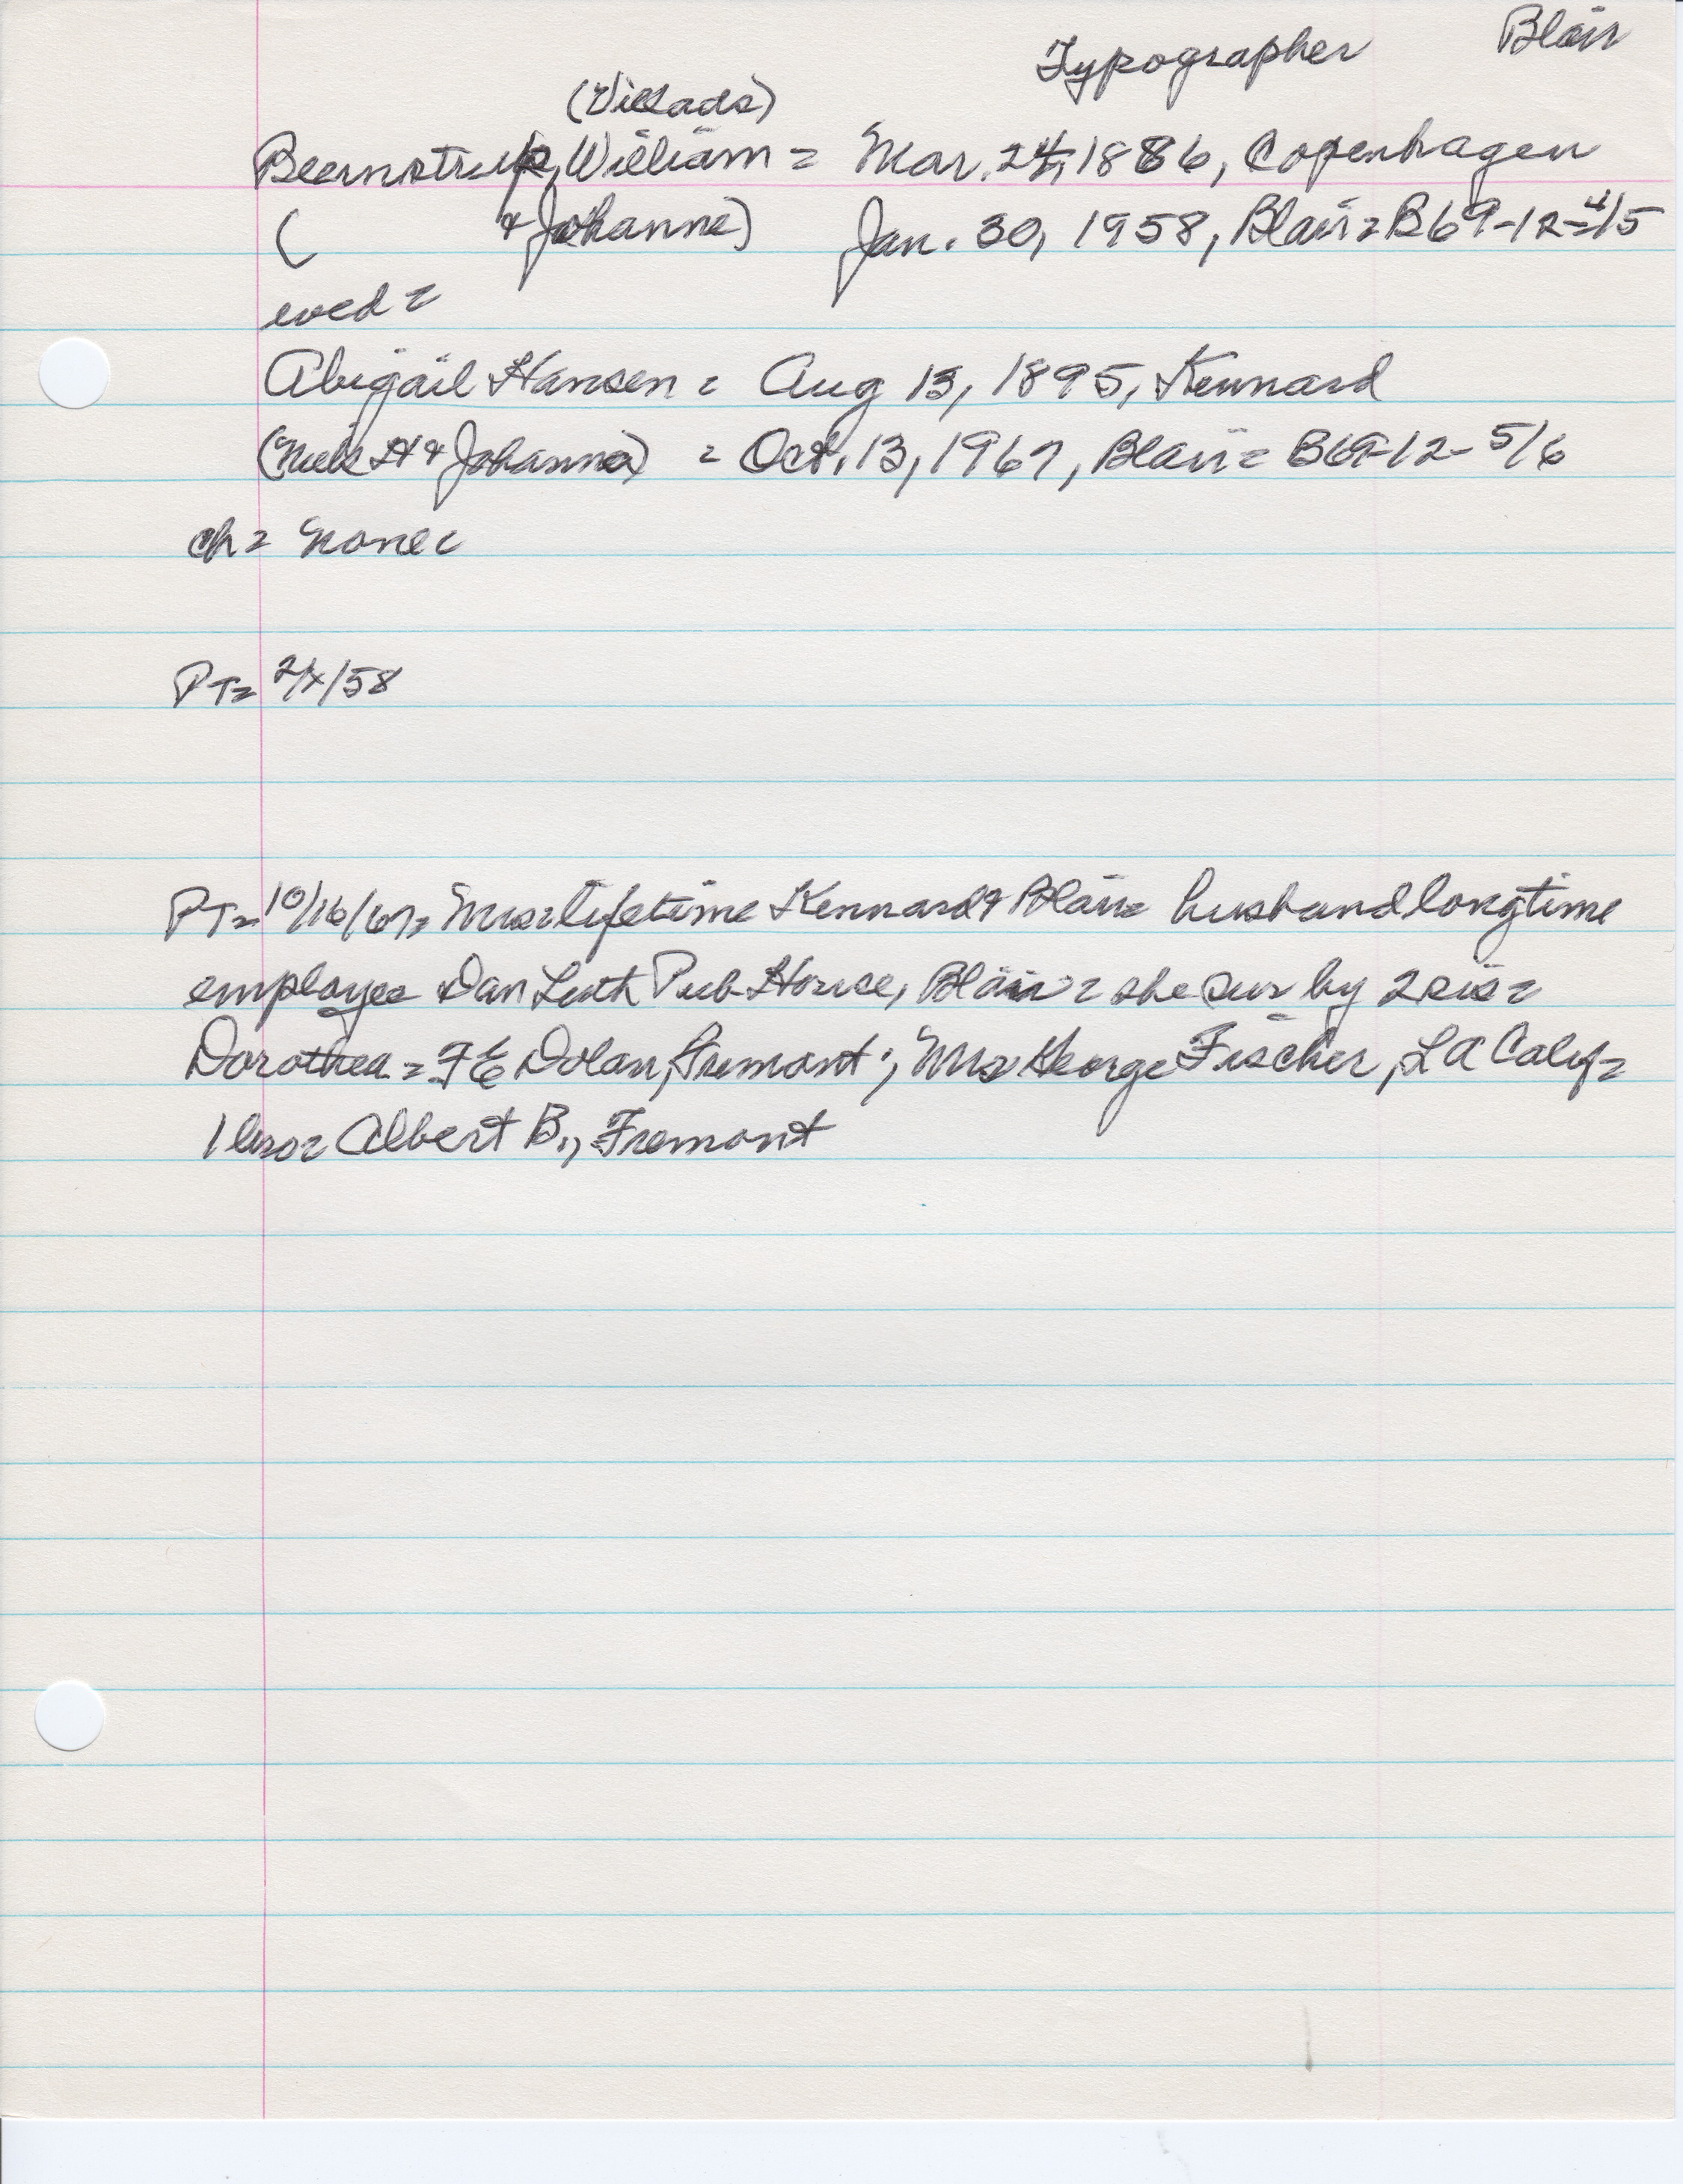 Typographer Blair
(Villads)
Beernstrup, William = Mar. 24, 1886, Copenhagen
( & Johanne) Jan. 30, 1958, Blair = B69-12-4/5
wed =
Abigail Hansen = Aug 13, 1895, Kennard
(Niels H & Johanna) = Oct. 13, 1967, Blair = B69-12-5/6
ch = none =
PT = 2/x/58
PT = 10/16/67 = Mrs = lifetime Kennard & Blair = husband longtime
employee Dan Luth Pub House, Blair = she sur by 2 sis =
Dorothea = F E Dolan, Fremont; Mrs George Fischer, LA Calif =
1 bro = Albert B., Fremont